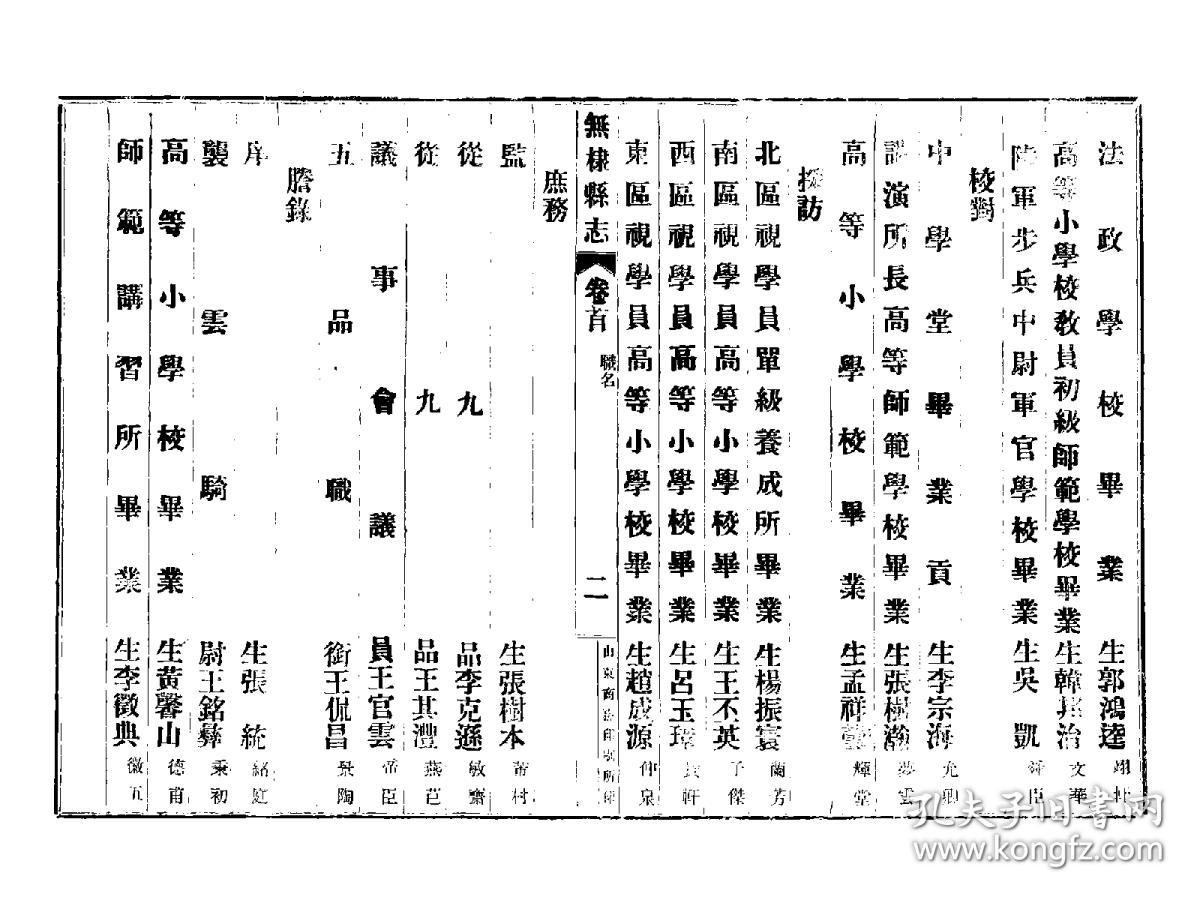 法政學校畢業生郭鴻逵
高等小學校教員初級師範學校畢業生韓其治文華
陸軍步兵中尉軍官學校畢業生吳凱舜臣
校對
中學堂畢業貢生李宗海允卿
講演所長高等師範學校畢業生張樹瀚夢雲
高等小學校畢業生孟祥 輝堂
採訪
北區視學員單級養成所畢業生楊振寰蘭芳
南區視學員高等小學校畢業生王丕英子傑
西區視學員高等小學校畢業生呂玉 軒
東區視學員高等小學校畢業生趙成源仲泉
無棣縣志 卷首 職名 二 山東商務印刷所印
庶務
監生張樹本 村
從九品李克遜敏齋
從九品王其灃燕芑
議事會議員王官雲帝臣
五品職銜王侃昌景陶
謄錄
庠生張統紹廷
襲雲騎尉王銘彝秉初
高等小學校畢業生黃馨山德甫
師範講習所畢業生李徽典徽五
孔夫子旧书网
www.kongfz.com